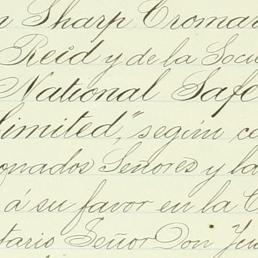 n Sharp Cromar
Reid y de la Socie
National Safe
limited," según co
onados Señores y la
á su favor en la C
tario Señor Don Ju